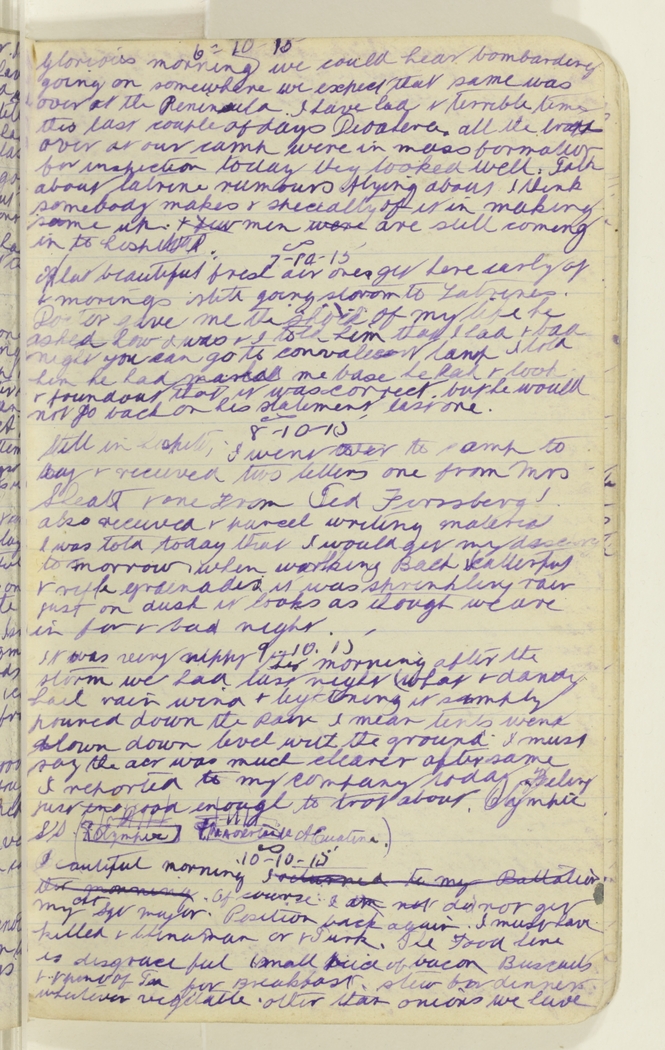 6-10-15
Glorious morning we could hear bombarding
going on somewhere we expect that same was
over at the Peninsula. I have had & terrible time
this last couple of days all the
over at our camp were in mass formation
for inspection today they looked well. Talk
about latrine rumours flying about I think
somebody makes & specially of it in making
same up. & few men were are still coming
in to
7-10-15
What beautiful fresh air ones get here early of
& mornings going down to Latrines.
Doctor give me the of my life he
asked how I was & I told him that I had & bad
night you can go to camp I told
him he had me base he &
& found out that it was correct, but he would
not go back on his statement last one.
8-10-15
Still in I went over to camp to
day & received two letters one from Mrs
& one from Ted
also received & parcel writing material
I was told today that I would get my
to morrow, when working
& rifle it was sprinkling rain
just on dusk it looks as though we are
in for & bad night.
9-10-15
It was very nippy this morning after the
storm we had last night (what & dandy
hail rain wind & lightning it simply
poured down the rain I mean tents went
blown down level with the ground. I must
say the air was much clearer after same
I reported to my company today feeling
just good enough to trot about. Olympic
(Olympic)
10-10-15
Beautiful morning I returned to my Battalion
this morning. Of course I am not did not get
my old Sgt major. Position back again. I must have
killed & Chinaman or & Turk. The Food line
is disgraceful small of bacon
& & pint of Tea for Breakfast. stew for dinner.
whatever vegetable other than onions we have